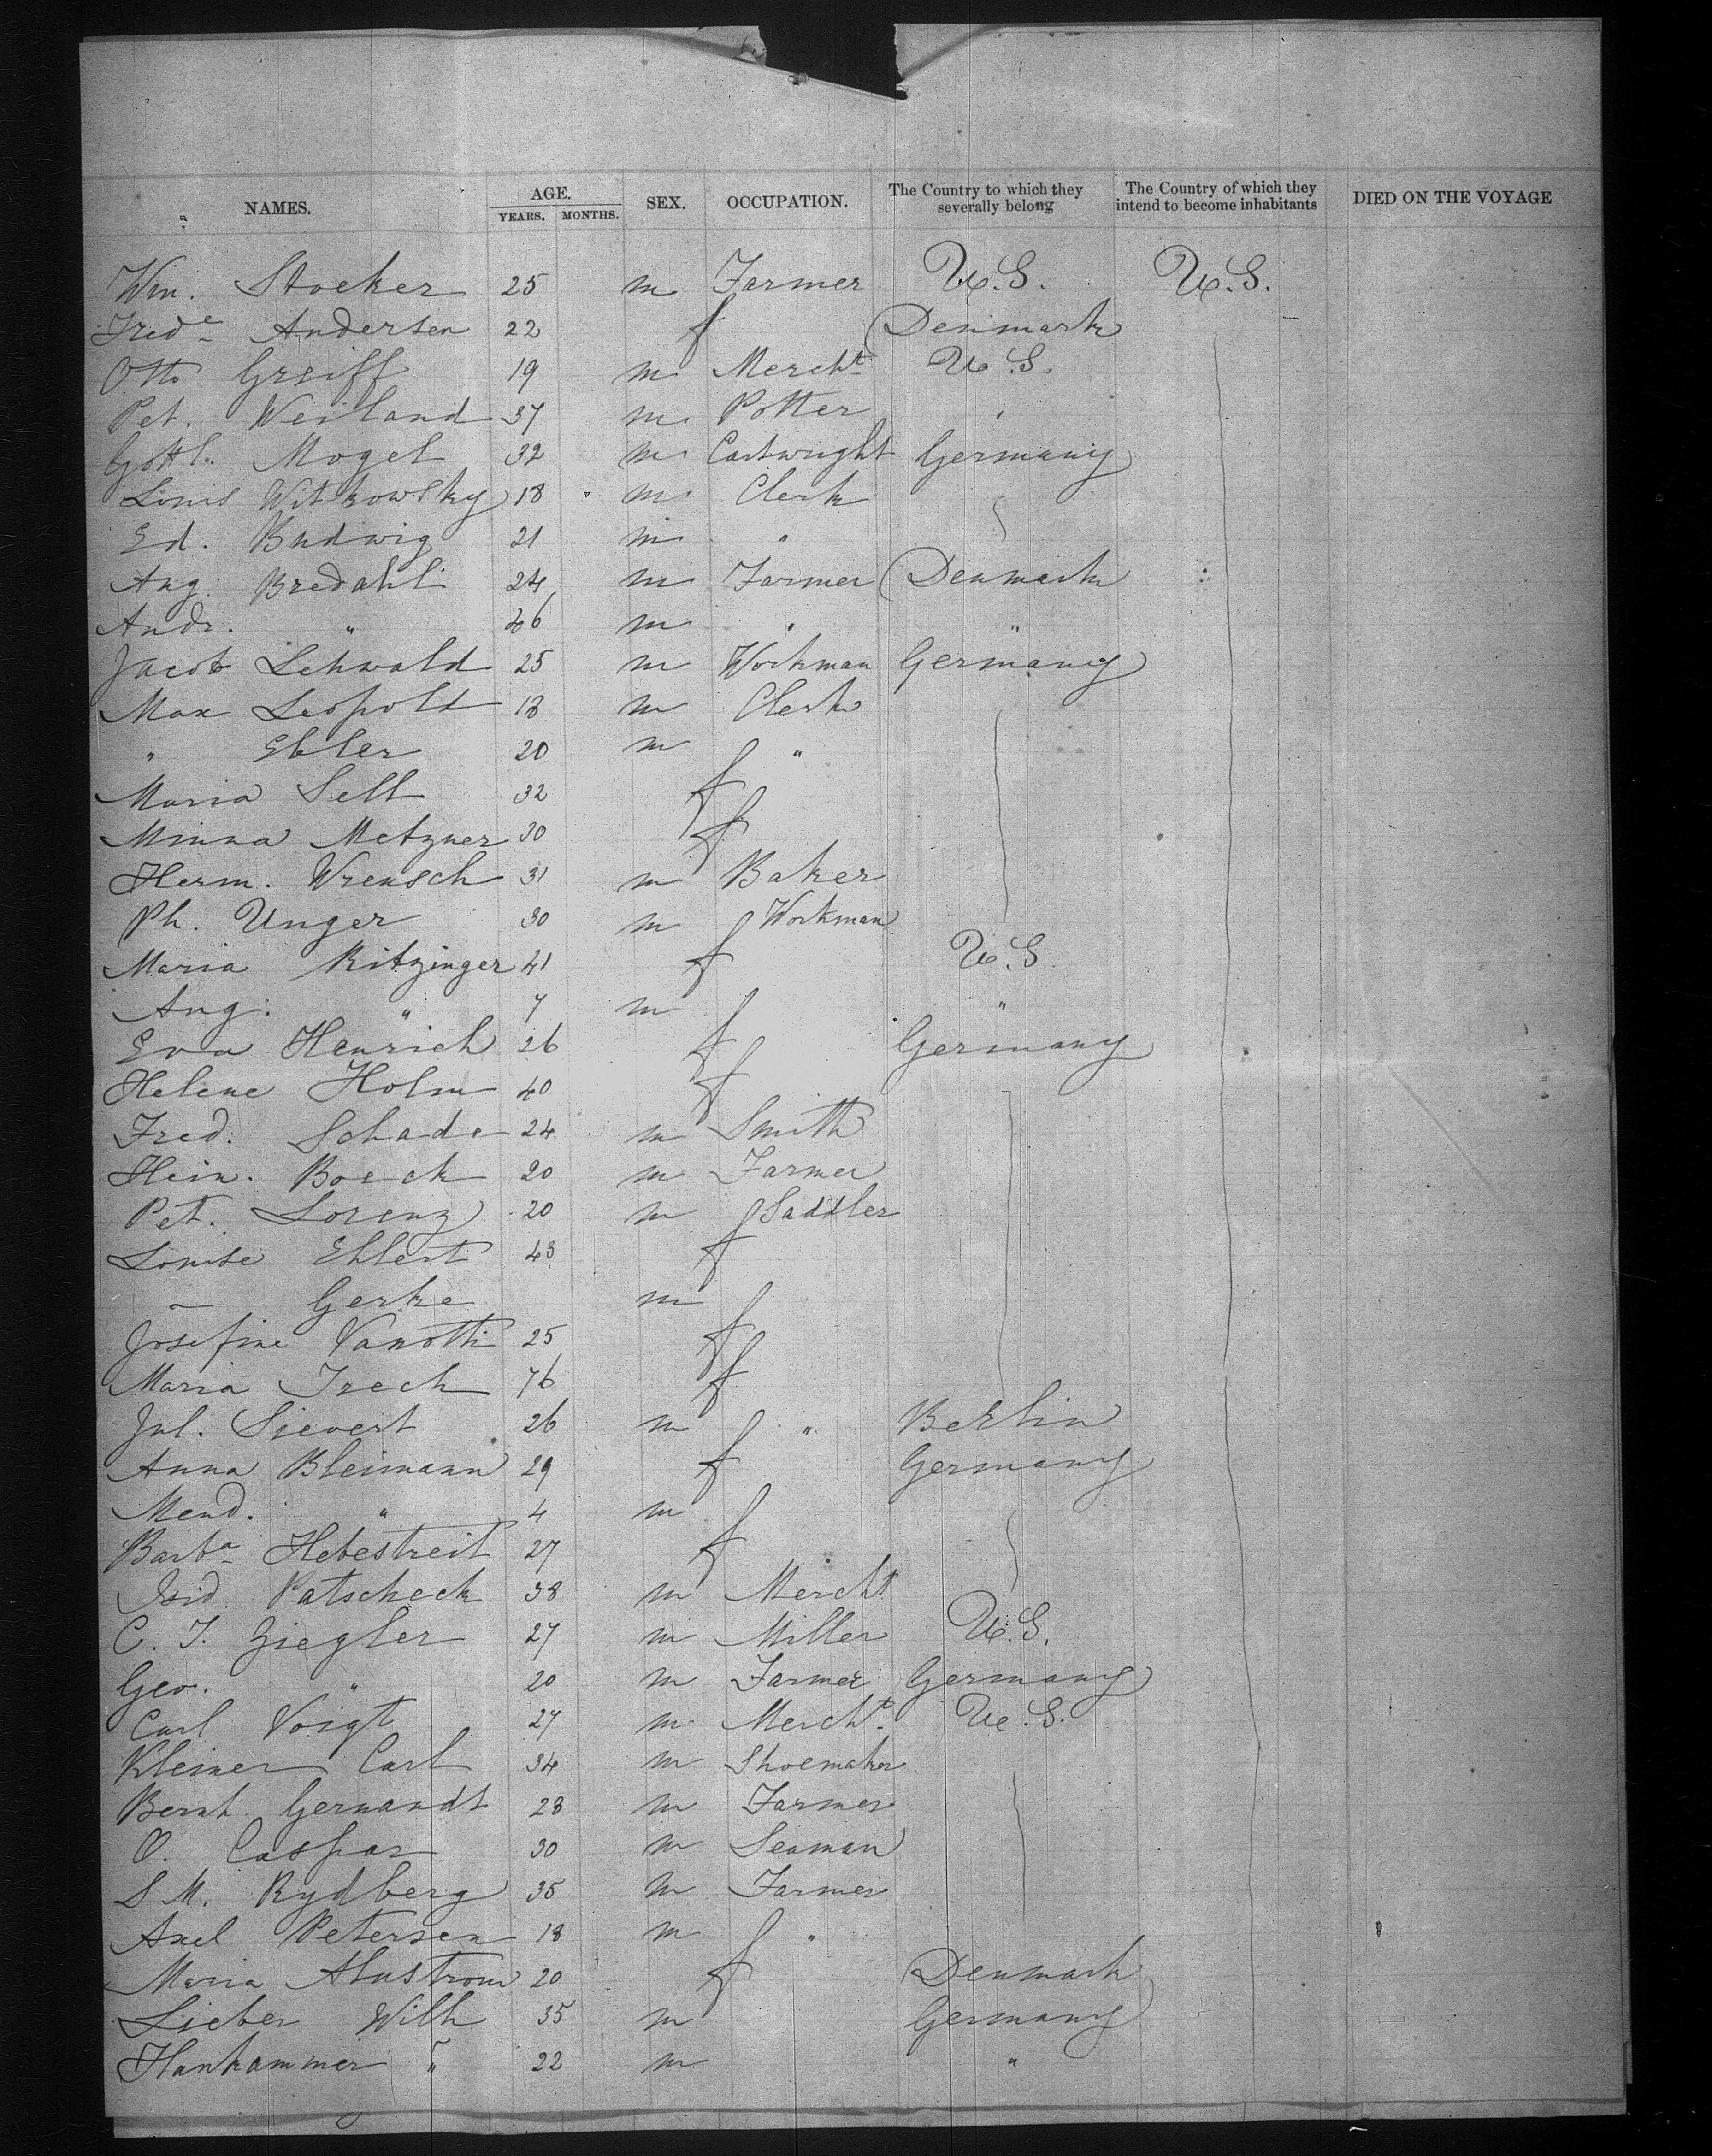 NAMES. AGE. YEARS. MONTHS. SEX. OCCUPATION. The Country to which they severally belong The Country of which they intend to become inhabitants DIED ON THE VOYAGE
Wm. Stocker 25 m Farmer U.S. U.S.
Fred.e Andersen 22 f Denmark
Otto Greiff 19 m Mercht U.S.
Pet. Weiland 37 m Potter "
Gottl. Mogel 32 m Cartwright Germany
Louis Witkowsky 18 m Clerk
Ed. Budwig 21 m "
Aug. Bredahl 24 m Farmer Denmark
Andr. " 26 m " "
Jacob Lehwald 25 m Workman Germany
Max Leopold 18 m Clerk
" Ebler 20 m "
Maria Sell 32 f
Minna Metzner 30 f
Herm. Wrensch 31 m Baker
Ph. Unger 30 m Workman
Maria Ritzinger 41 f U.S.
Aug. " 7 m "
Eva Henrich 26 f Germany
Helene Holm 40 f
Fred. Schade 24 m Smith
Hein. Boeck 20 m Farmer
Pet. Lorenz 20 m Saddler
Louise Ehlert 43 f
— Gerke m
Josefine Vanotti 25 f
Maria Frech 76 f
Jul. Sievert 26 m " Berlin
Anna Bleimann 29 f Germany
Mend. " 4 m
Barba Hebestreit 27 f
Isid. Patscheck 38 m Mercht
C. F. Ziegler 27 m Miller U.S.
Geo. " 20 m Farmer Germany
Carl Voigt 27 m Mercht. U.S.
Kleiner Carl 34 m Shoemaker
Bernh. Gernandt 28 m Farmer
O. Caspar 30 m Seaman
S. M. Rydberg 35 m Farmer
Axel Petersen 18 m "
Maria Almstrom 20 f Denmark
Lieber Wilh 35 m Germany
Hankammer " 22 m "